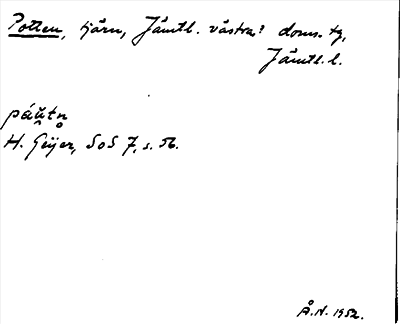 Potten, tjärn, Jämtl. västra? doms. tg,
Jämtl. l.
páu̯tn̥
H. Geijer, SoS 7, s. 56.
Å.N. 1952.